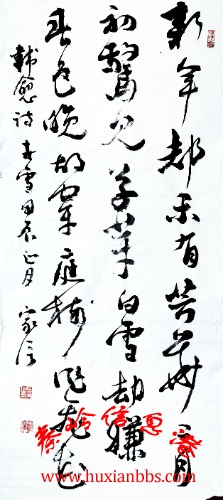 新年都未有芳華二月
初驚見草芽白雪却嫌
春色晚故穿庭樹作飛花
韓愈詩春雪甲辰正月家信
www.huxianbbs.com